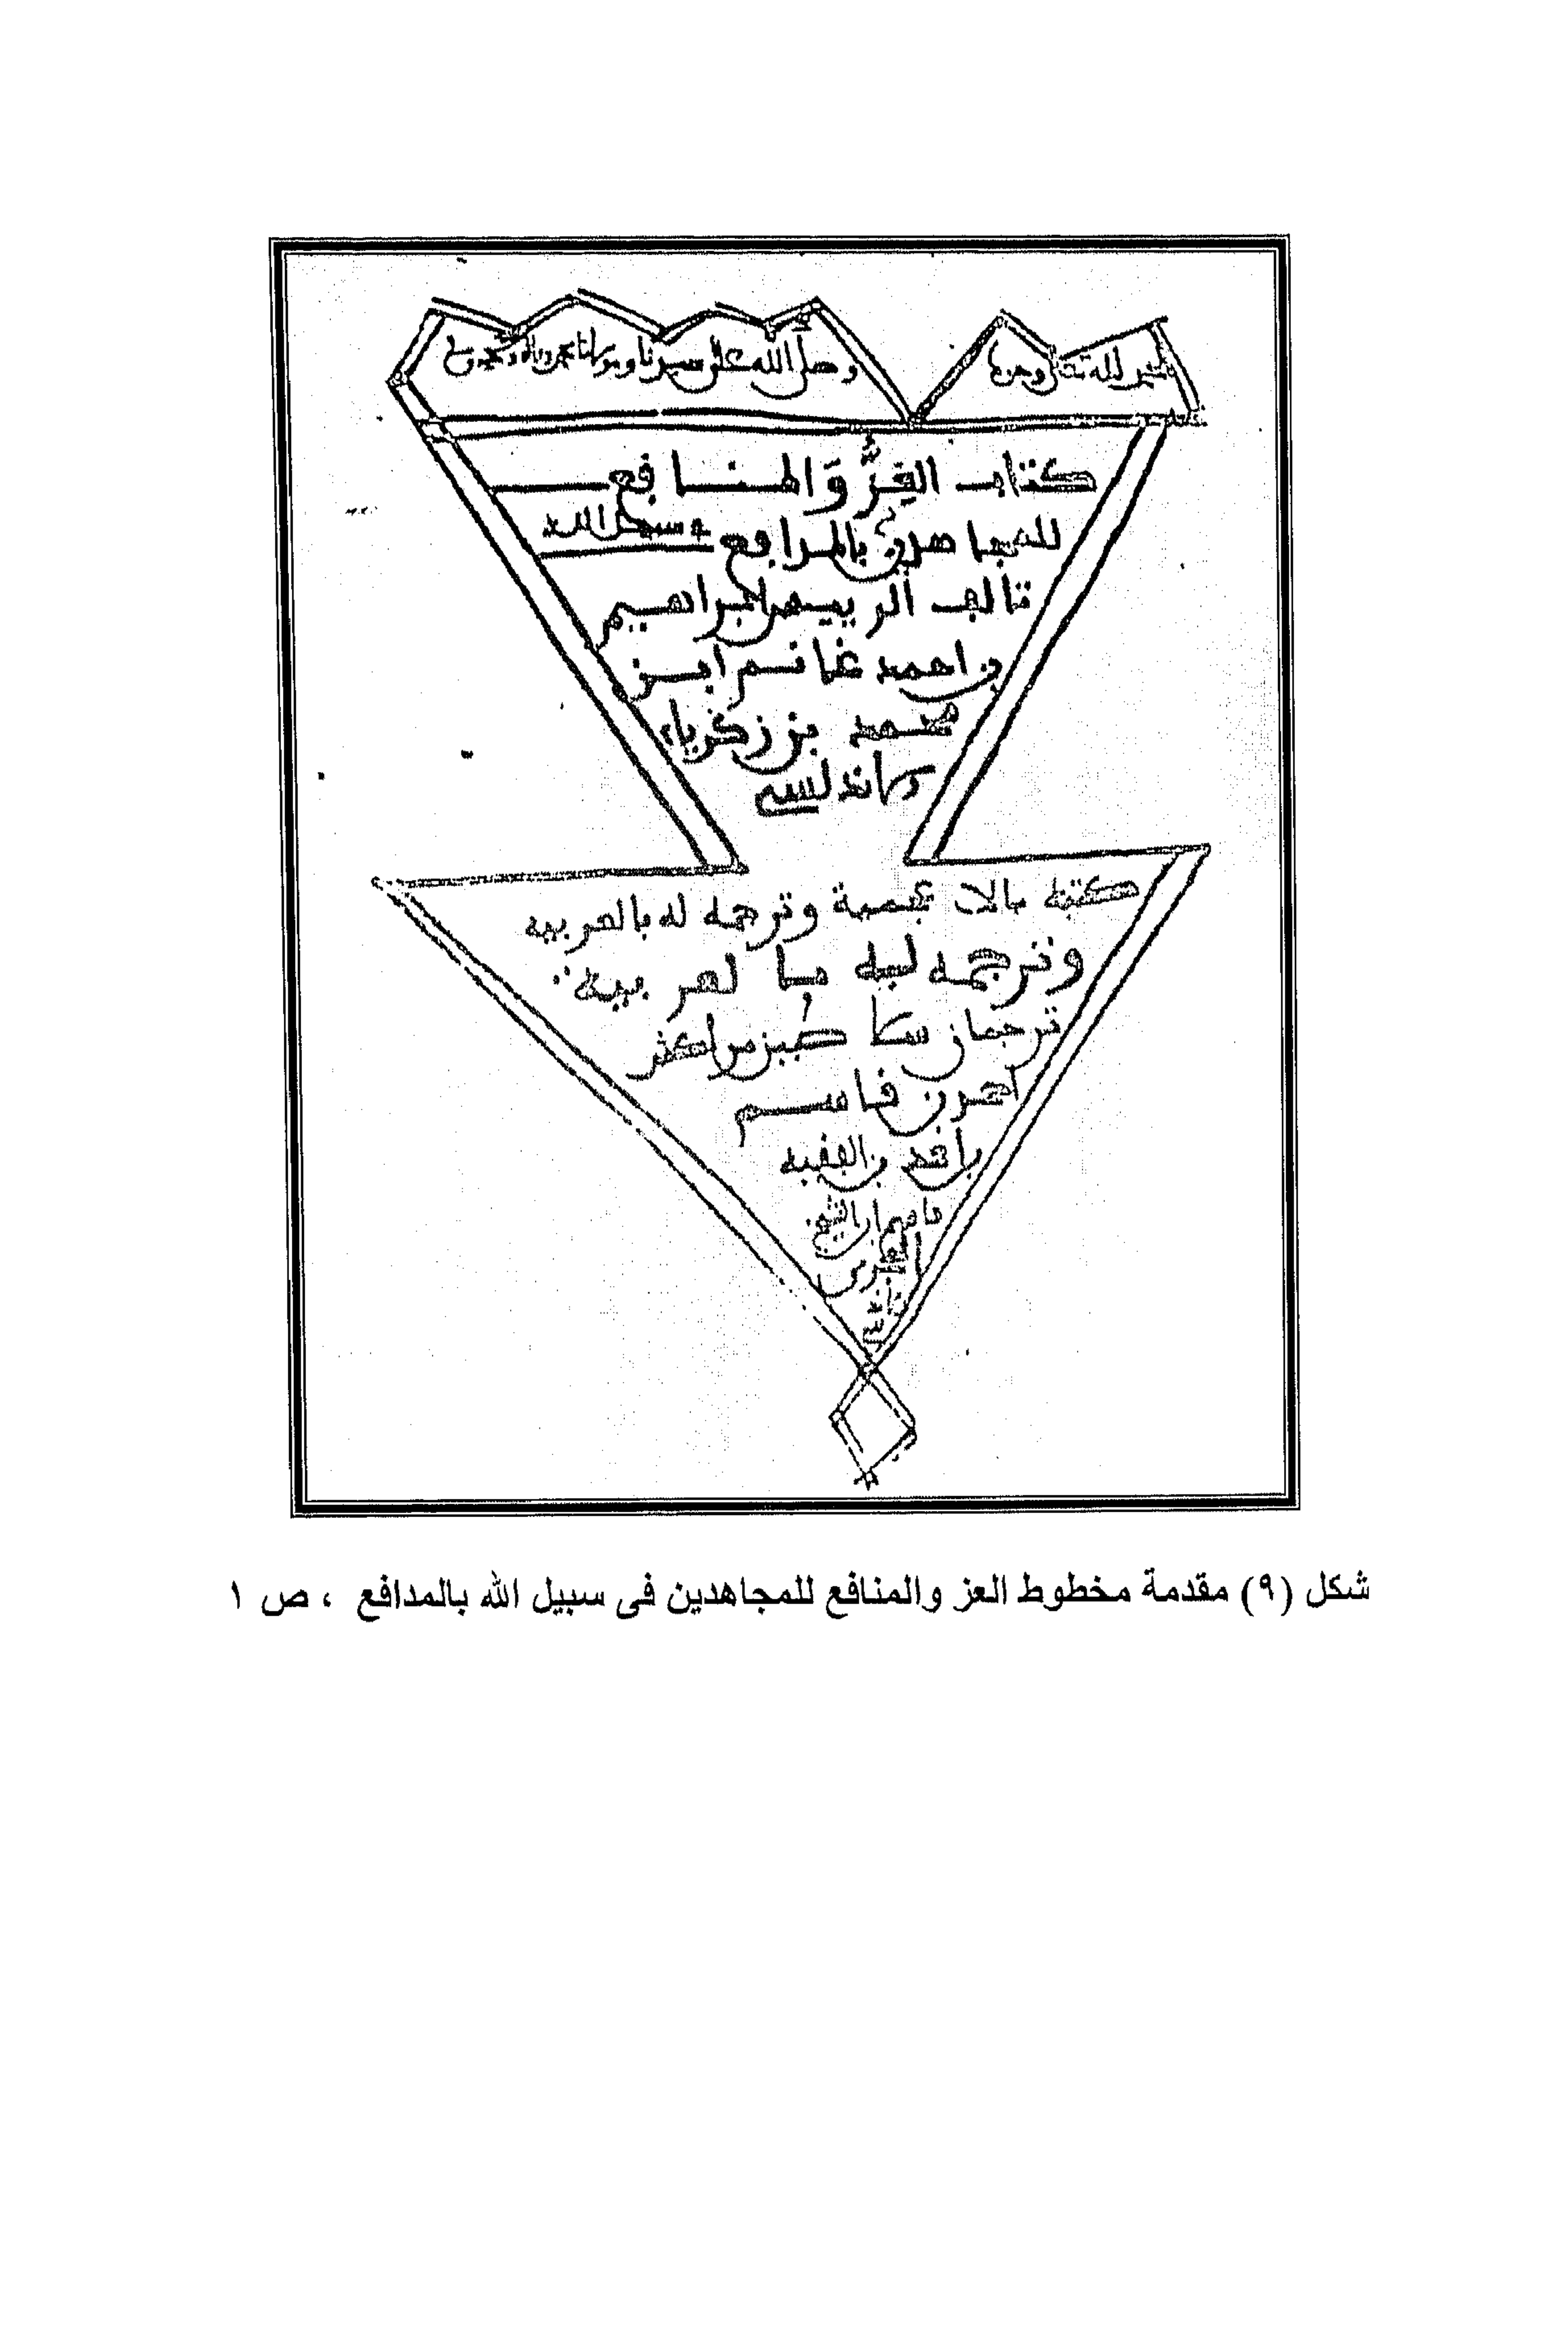 الحمد لله تعالى وحده
وصلى الله على سيدنا ومولانا محمد وءاله وصحبه وسلم
كتاب العِزُّ وَالمنافع
للمجاهدين بالمدافع في سبيل الله
تاليف الرييس ابراهيم
بن احمد غانم ابن
محمد بن زكرياء
الاندلسي
كتبه بالاعجمية وترجمه له بالعربيه
وترجمه ليه بالعربية
ترجمان سلاطين مراكش
احمد بن قاسم
بن احمد بن الفقيه
قاسم ابن الشيخ
الحجري
الاندلسي
شكل (٩) مقدمة مخطوط العز والمنافع للمجاهدين فى سبيل الله بالمدافع ، ص ١